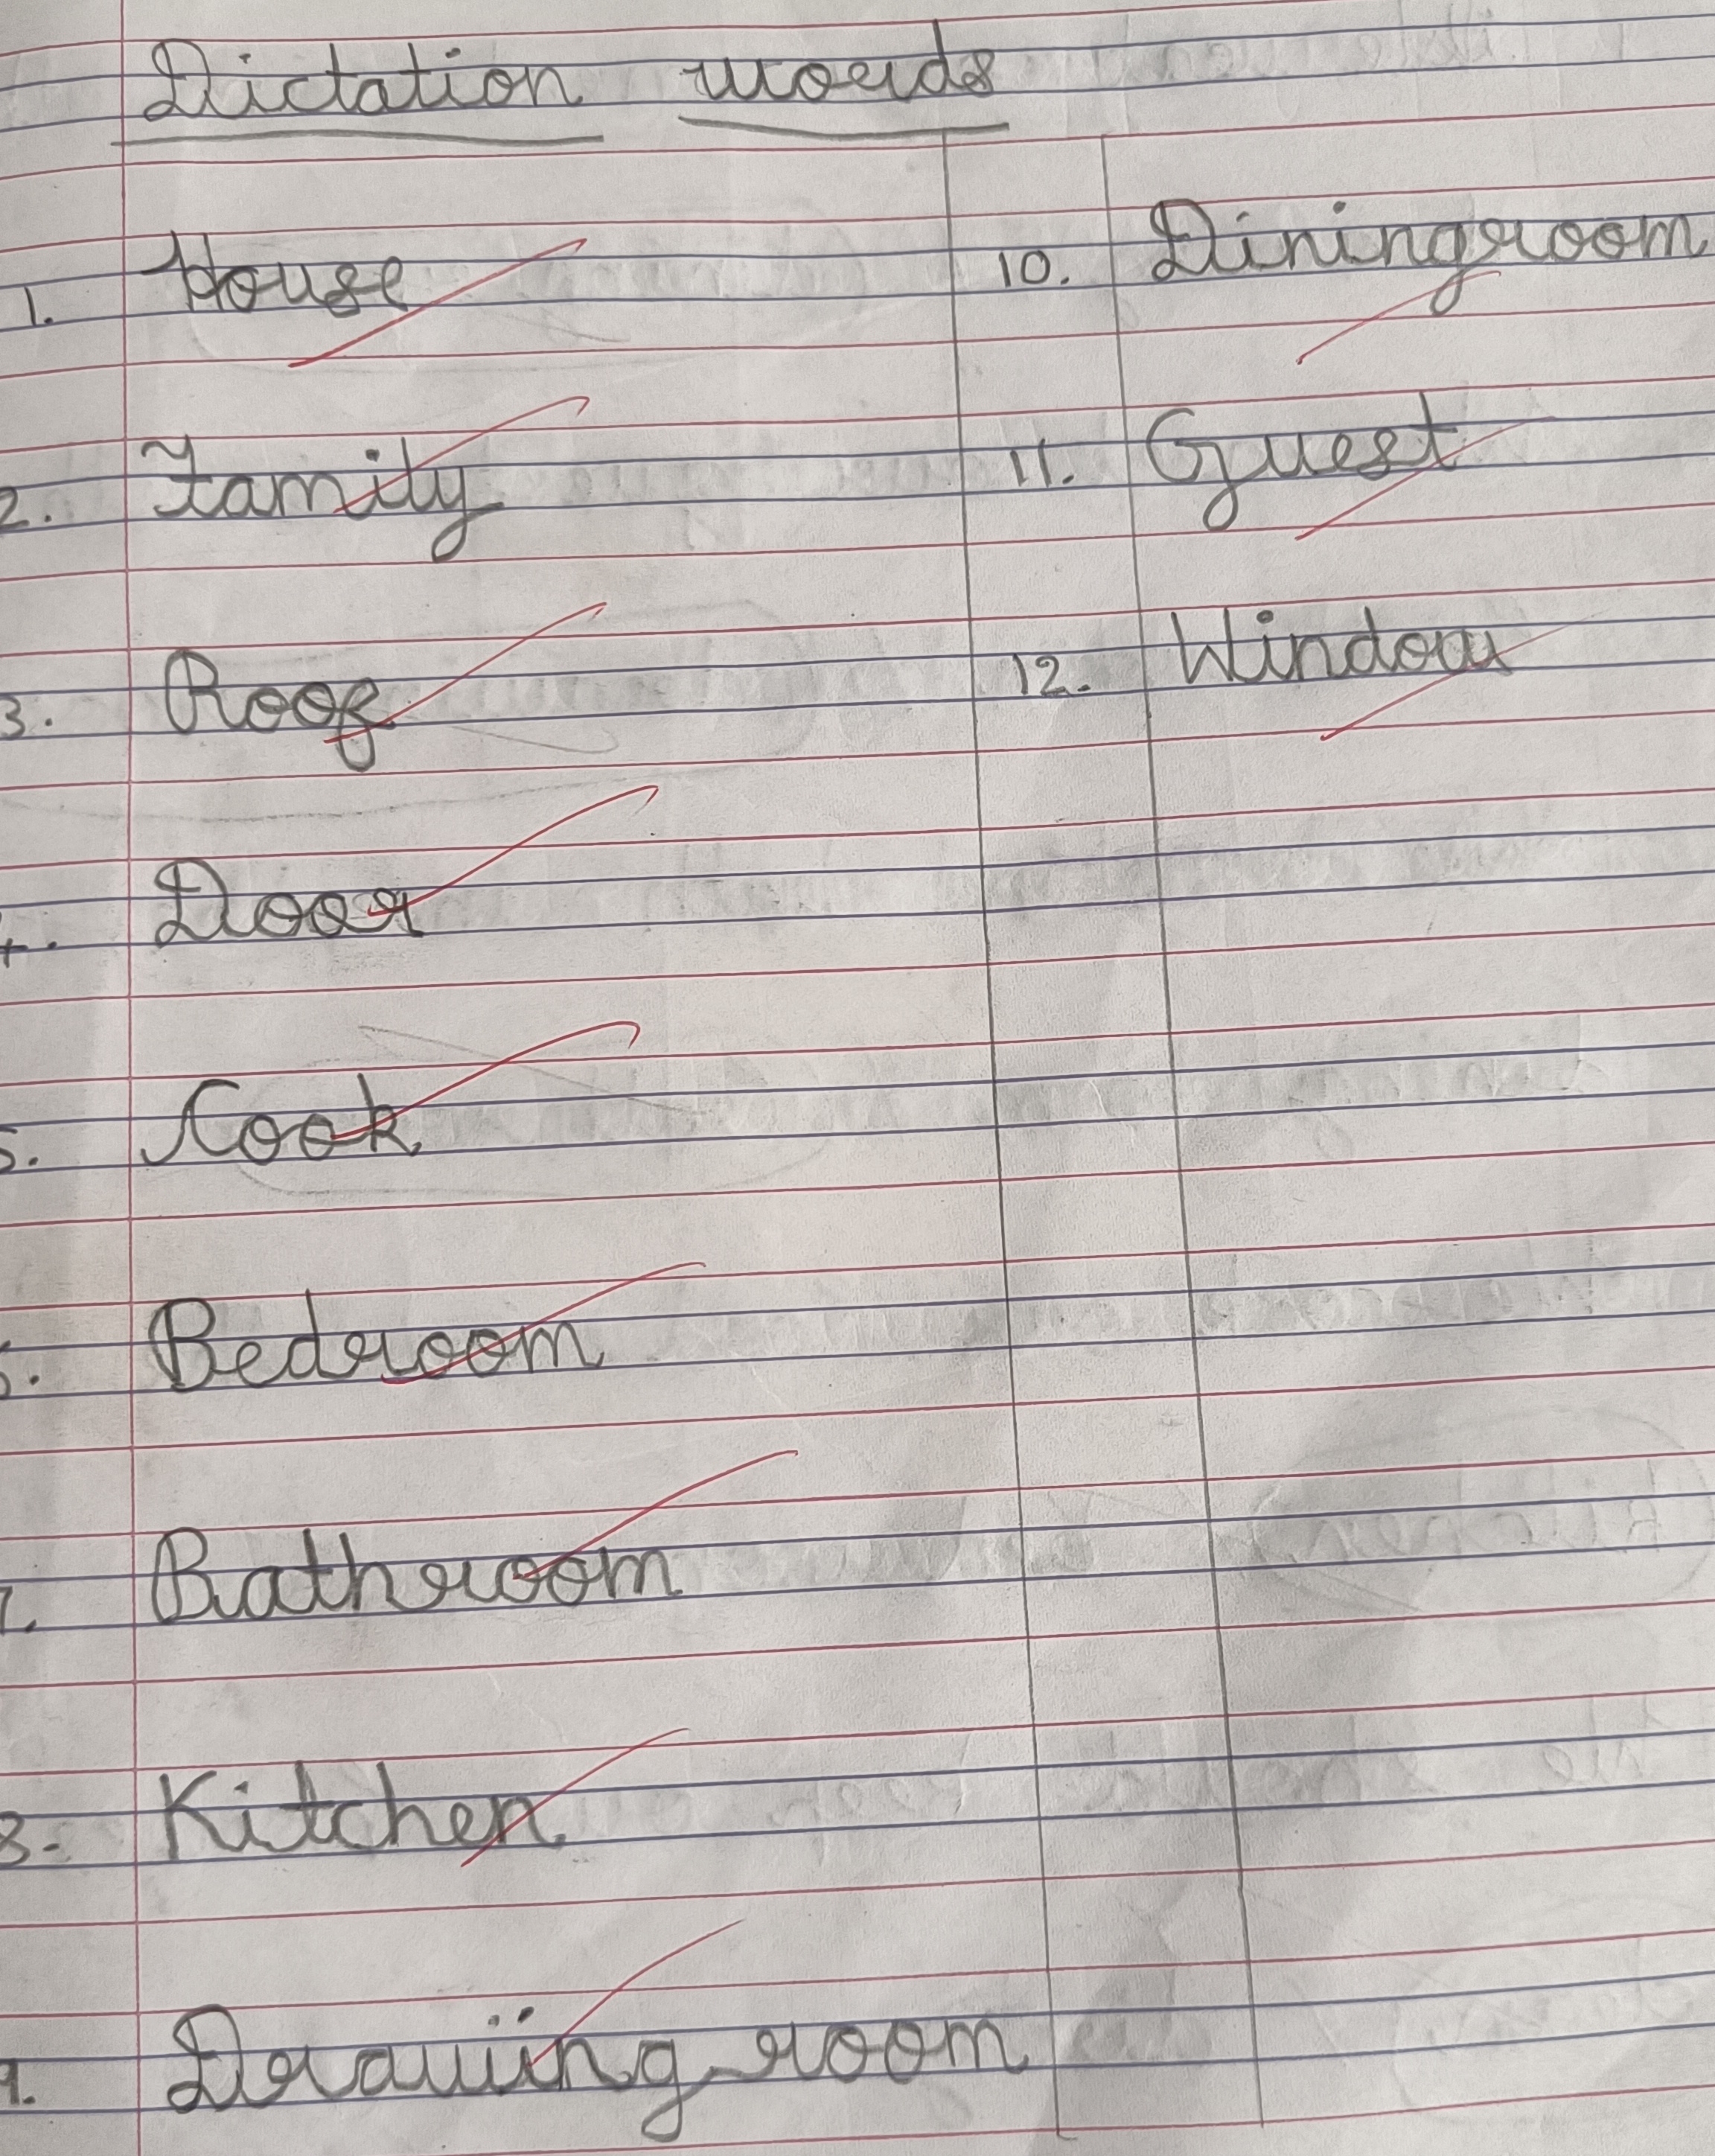 Dictation words
1. House
2. Family
3. Roof
4. Door
5. Cook
6. Bedroom
7. Bathroom
8. Kitchen
9. Drawiing room
10. Diningroom
11. Guest
12. Window